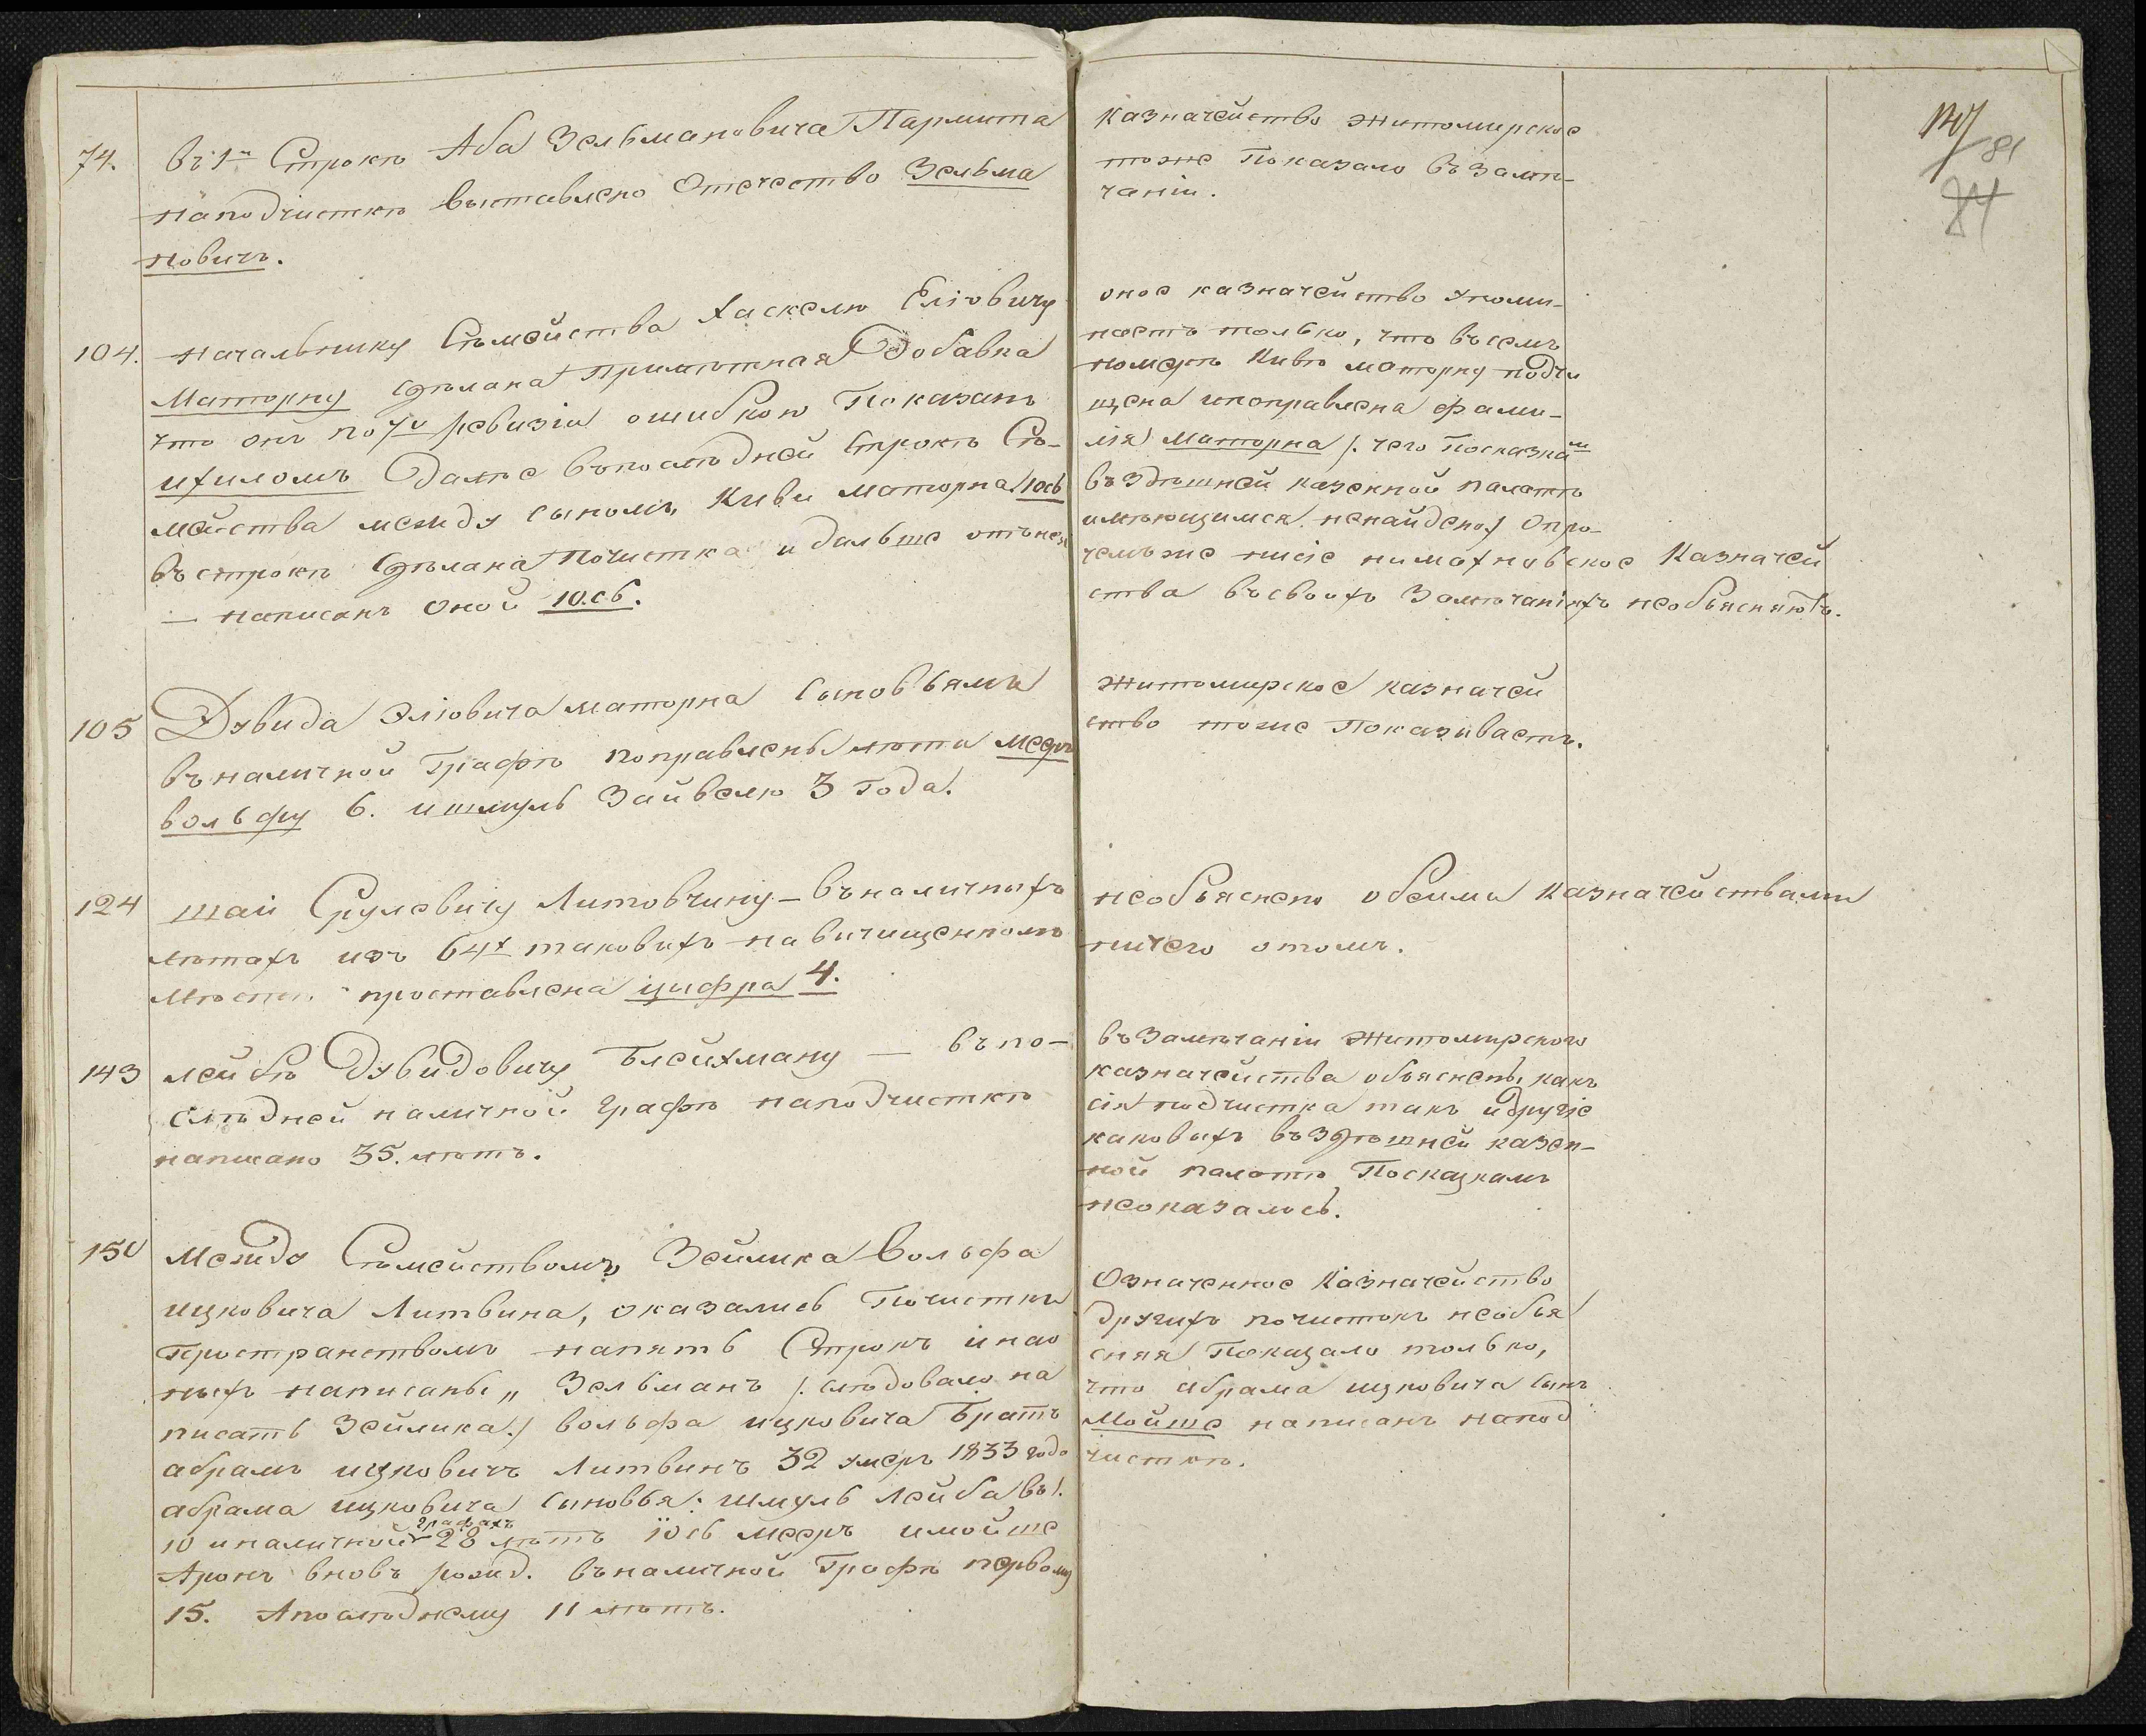 74. въ 1й Строкѣ Аба Зельмановича Пармита
наподчисткѣ выставлено Отечество Зельма
новичъ.
104. Начальнику Сѣмейства Хаскелю Еліовичу
Маторну сдѣлана примѣтная Добавка
что онъ по 7й ревизіи ошибкою Показанъ
ихиломъ Далѣе въ последней строкѣ Сѣ-
мейства между сыномъ Киви маторна Іось
въ строкѣ сдѣлана почистка и дальше отъ нея
— написанъ оной Іось.
105 Дувида Эліовича маторна сыновьямъ
въ наличной Графѣ поправлены лѣта меер
вольфу 6. и шмуль Зайвелю 3 года.
124 Шаи Срулевичу Литовчину — въ наличныхъ
лѣтахъ изъ 64х таковыхъ на вичищенномъ
мѣсте проставлена цифра 4.
143 лейбѣ Дувидовичу Блейхману — въ по-
слѣдней наличной графѣ наподчисткѣ
написано 35. лѣтъ.
150 Между Сѣмействомъ Зейлика Вольфа
ицковича Литвина, оказались Почистки
Пространствомъ на пять Строкъ и на о
ныхъ написаны „ Зельманъ /: слѣдовало на
писать Зейлика :/ вольфа ицковича братъ
абрамъ ицковичъ Литвинъ 32 умеръ 1833 года
абрама ицковича сыновья: шмуль Лейба въ 1.
графахъ
10 и наличной 28 лѣтъ Іось мееръ и мойше
Аронъ вновь рожд. въ наличной Графѣ первому
15. А последнему 11 лѣтъ.
Казначейство Житомирское
тоже Показало въ замѣ-
чаніи.
оное казначейство упоми-
наетъ только, что въ семъ
номерѣ Кивѣ маторну подчи
щена и поправлена фами-
лія маторна /: чего Посказкамъ
въ здѣшней казенной палатѣ
имѣющимся ненайдено :/ О про-
чемъ же ниже Казначей
ства въ своихъ Замѣчаніяхъ необъясняютъ.
Житомирское казначей
ство тоже Показываетъ.
необъяснено обеими Казначействами
ничего отомъ.
въ Замѣчаніи Житомирского
казначейства объяснены какъ
сія подчистка такъ и другіе
каковыхъ въ здѣшней казен-
ной палатѣ Посказкамъ
неоказалось.
Означенное Казначейство
другихъ почистокъ необъя
сняя Показало только,
что абрама ицковича сынъ
Мойше написанъ напод
чисткѣ.
81
84